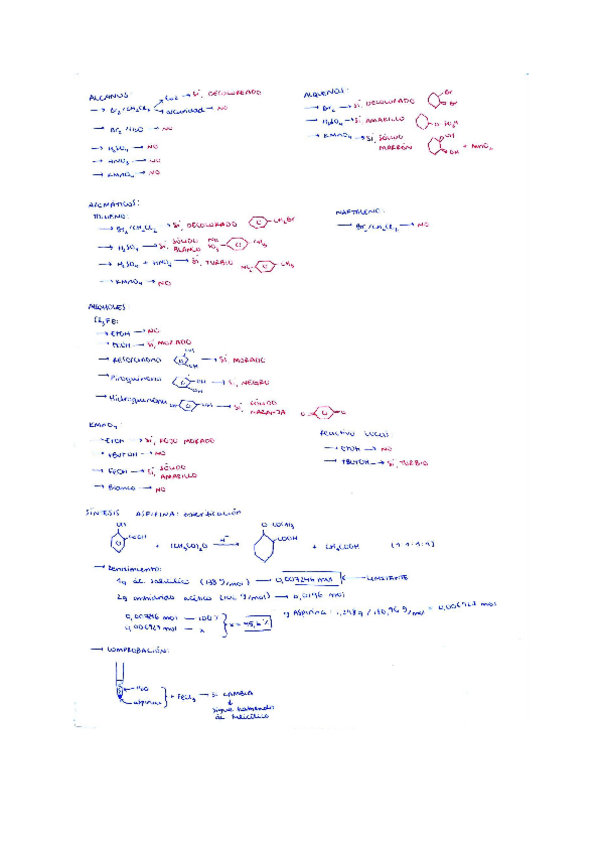 ALCANOS:
→ Br₂/CH₂Cl₂ → Luz → SÍ, DECOLORADO
→ oscuridad → NO
→ Br₂/H₂O → NO
→ H₂SO₄ → NO
→ HNO₃ → NO
→ KMnO₄ → NO
ALQUENOS:
→ Br₂ → SÍ, DECOLORADO Br Br
→ H₂SO₄ → SÍ, AMARILLO
→ KMnO₄ → SÍ, SÓLIDO MARRÓN OH OH + MnO₂
AROMÁTICOS:
TOLUENO:
→ Br₂/CH₂Cl₂ → SÍ, DECOLORADO CH₂Br
→ H₂SO₄ → SÍ, SÓLIDO BLANCO CH₃
→ H₂SO₄ + HNO₃ → SÍ, TURBIO CH₃
→ KMnO₄ → NO
NAFTALENO:
→ Br₂/CH₂Cl₂ → NO
→ EtOH → NO
→ SÍ, MORADO
→ Resorcinol OH OH → SÍ MORADO
→ OH OH → SÍ, NEGRO
→ Hidroquinona OH OH → SÍ, SÓLIDO NARANJA
KMnO₄:
→ EtOH → SÍ, ROJO MORADO
→ tBuTOH → NO
→ SÍ, SÓLIDO AMARILLO
→ Blanco → NO
reactivo Lucas:
→ EtOH → NO
→ tBuTOH → SÍ, TURBIO
SÍNTESIS ASPIRINA: esterificación
OH COOH + (CH₃CO)₂O H⁺ → O COCH₃ COOH + CH₃COOH (1:1-1:1)
→ Rendimiento:
1g ác. salicílico (138 g/mol) → 0,007246 mol ← LIMITANTE
2g anhídrido acético (102 g/mol) → 0,0196 mol
0,007246 mol — 100%
0,006927 mol — x
x =
g ASPIRINA: 1,248g / g/mol = mol
→ COMPROBACIÓN:
← H₂O
← aspirina
+ FeCl₃ → SI CAMBIA
sigue habiendo
ác. salicílico